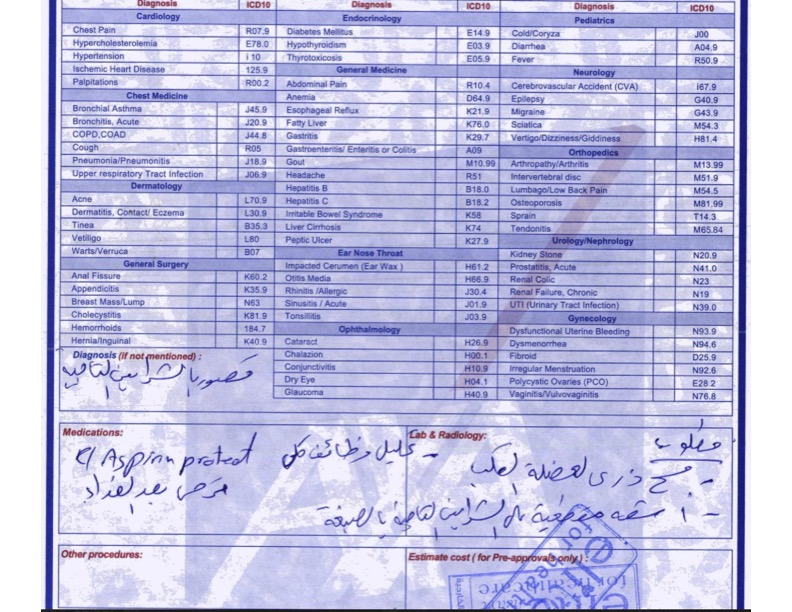 Diagnosis ICD10
Cardiology
Chest Pain R07.9
Hypercholesterolemia E78.0
Hypertension I 10
Ischemic Heart Disease 125.9
Palpitations R00.2
Chest Medicine
Bronchial Asthma J45.9
Bronchitis, Acute J20.9
COPD,COAD J44.8
Cough R05
Pneumonia/Pneumonitis J18.9
Upper respiratory Tract Infection J06.9
Dermatology
Acne L70.9
Dermatitis, Contact/ Eczema L30.9
Tinea B35.3
Vetiligo L80
Warts/Verruca B07
General Surgery
Anal Fissure K60.2
Appendicitis K35.9
Breast Mass/Lump N63
Cholecystitis K81.9
Hemorrhoids 184.7
Hernia/Inguinal K40.9
Diagnosis (if not mentioned) :
قصور بالشرايين التاجية
Diagnosis ICD10
Endocrinology
Diabetes Mellitus E14.9
Hypothyroidism E03.9
Thyrotoxicosis E05.9
General Medicine
Abdominal Pain R10.4
Anemia D64.9
Esophageal Reflux K21.9
Fatty Liver K76.0
Gastritis K29.7
Gastroenteritis/ Enteritis or Colitis A09
Gout M10.99
Headache R51
Hepatitis B B18.0
Hepatitis C B18.2
Irritable Bowel Syndrome K58
Liver Cirrhosis K74
Peptic Ulcer K27.9
Ear Nose Throat
Impacted Cerumen (Ear Wax ) H61.2
Otitis Media H66.9
Rhinitis /Allergic J30.4
Sinusitis / Acute J01.9
Tonsillitis J03.9
Ophthalmology
Cataract H26.9
Chalazion H00.1
Conjunctivitis H10.9
Dry Eye H04.1
Glaucoma H40.9
Diagnosis ICD10
Pediatrics
Cold/Coryza J00
Diarrhea A04.9
Fever R50.9
Neurology
Cerebrovascular Accident (CVA) I67.9
Epilepsy G40.9
Migraine G43.9
Sciatica M54.3
Vertigo/Dizziness/Giddiness H81.4
Orthopedics
Arthropathy/Arthritis M13.99
Intervertebral disc M51.9
Lumbago/Low Back Pain M54.5
Osteoporosis M81.99
Sprain T14.3
Tendonitis M65.84
Urology/Nephrology
Kidney Stone N20.9
Prostatitis, Acute N41.0
Renal Colic N23
Renal Failure, Chronic N19
UTI (Urinary Tract Infection) N39.0
Gynecology
Dysfunctional Uterine Bleeding N93.9
Dysmenorrhea N94.6
Fibroid D25.9
Irregular Menstruation N92.6
Polycystic Ovaries (PCO) E28.2
Vaginitis/Vulvovaginitis N76.8
Medications:
Aspirin protect
قرص بعد الغداء
Lab & Radiology:
مطلوب
- مسح ذرى لعضلة القلب
- أشعة مقطعية على الشرايين التاجية بالصبغة
- تحليل وظائف كلى
Other procedures:
Estimate cost ( for Pre-approvals only ) :